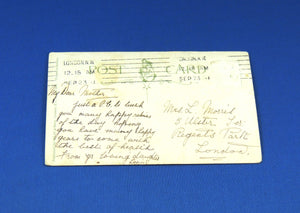 LONDON.N.W
12.15 PM
SEP 23 11
POST CARD
My Dear Mother
just a P.C. to wish
you many happy returns
of the day hoping
you have many happy
years to come with
the best of health
From yr loving daughter
Mrs L. Morris
5 Ulster Ter
Regents Park
London